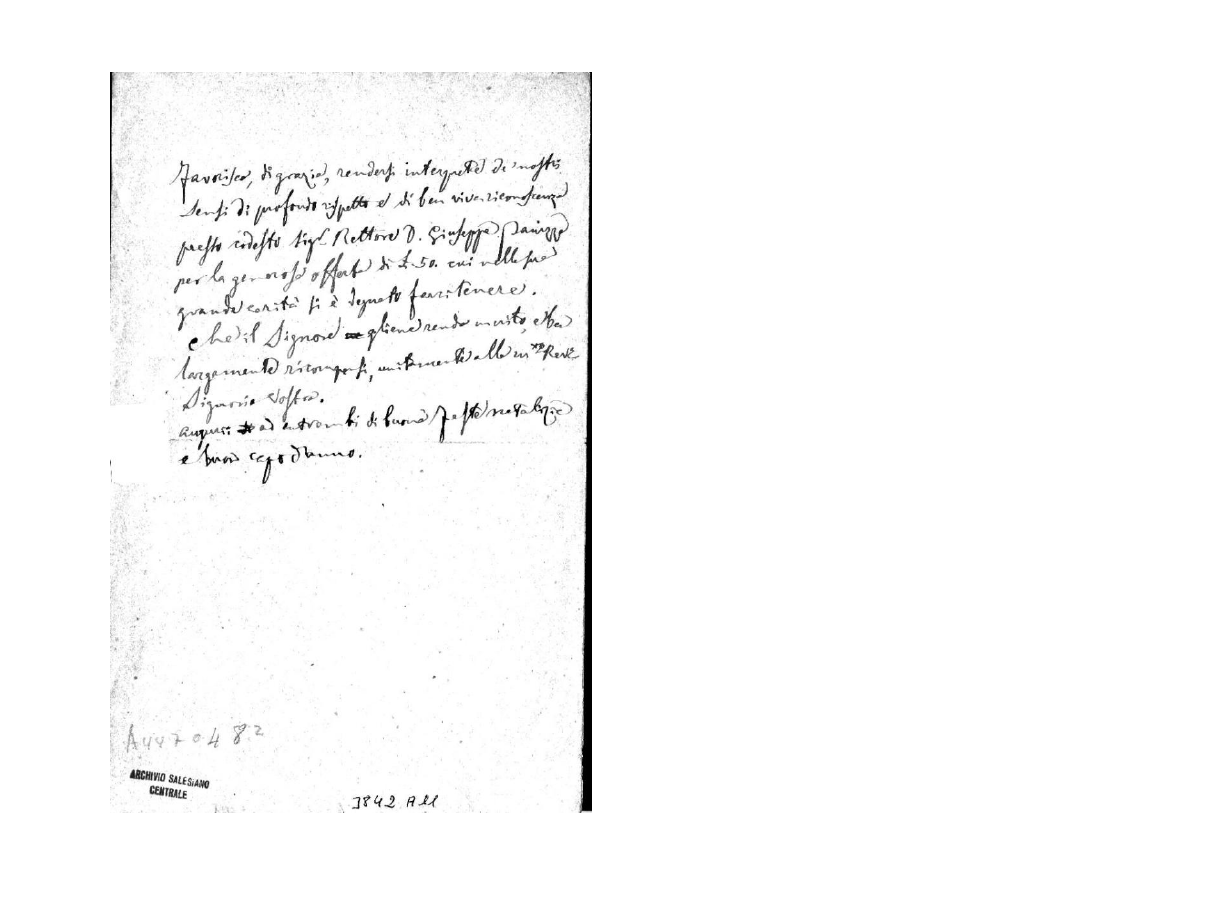 Favorisca, di grazia, rendersi interprete de' nostri
sensi di profondo rispetto e di ben viva riconoscenza
presso codesto Sigr Rettore D. Giuseppe
per la generosa offerta di £ 50. cui nella sua
grande carità si è degnato farci tenere.
Che il Signore gliene renda merito, e
largamente ricompensi, unitamente alla
Signoria Vostra.
Auguri ad entrambi di buone Feste natalizie
e buon capo d'anno.
A4470482
ARCHIVIO SALESIANO
CENTRALE
3842 A